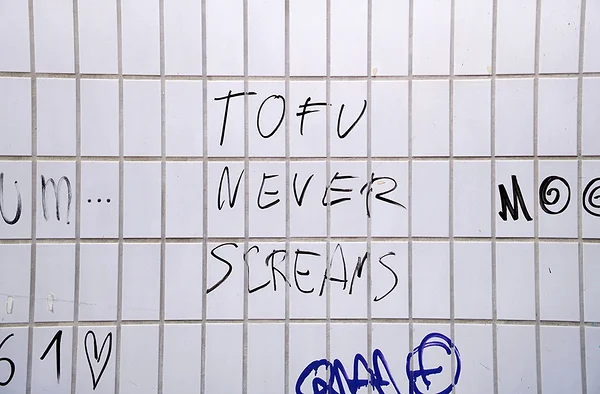 TOFU
NEVER
SCREAMS
UM...
61♡